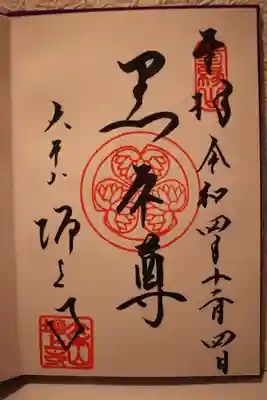 奉拝 令和四年十二月四日
黒本尊
大本山 増上寺